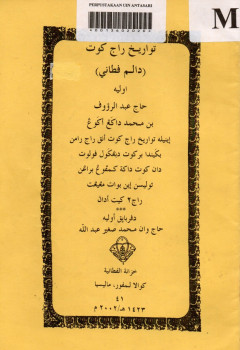 PERPUSTAKAAN UIN ANTASARI
M
تواريخ راج كوت
(دالم فطاني)
اوليه
حاج عبد الرؤوف
بن محمد داكڠ اكوڠ
اينيله تواريخ راج كوت انق راج رامن
بركوت دفڬكول فولوت
دان كوت داكه كمڤوڠ
توليسن اين بوات مڠيڠت
راج٢ كيت ادالن
***
دفربايق أوليه
حاج وان محمد صغير عبد الله
خزانة الفطانية
كوالا لمفور، ماليسيا
٤١
١٤٢٣هـ/٢٠٠٢م